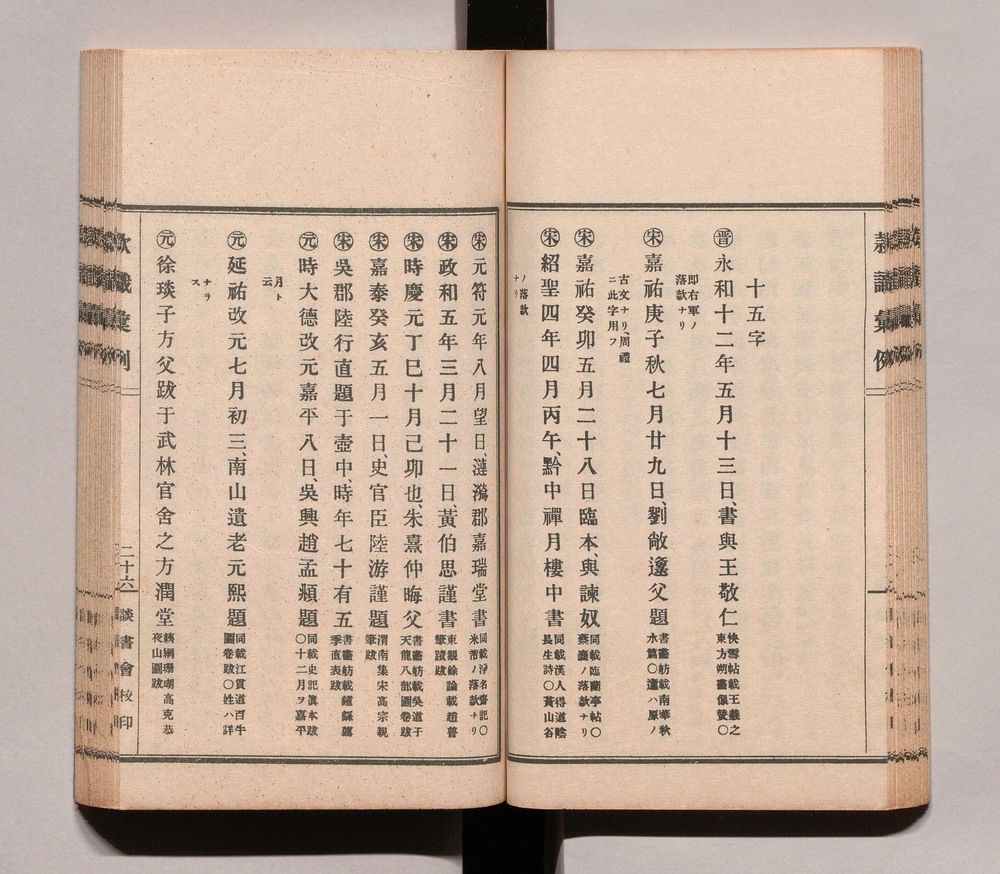 十五字
㊥晋 永和十二年五月十三日、書與王敬仁 快雪帖載王羲之東方朔畫像贊〇
即右軍ノ落款ナリ
宋 嘉祐庚子秋七月廿九日劉敞邍父題 書畫舫載南華秋水篇〇邍ハ原ノ
古文ナリ、周禮ニ此字用フ
宋 嘉祐癸卯五月二十八日臨本、與諫奴 同載臨蘭亭帖〇蔡襄ノ落款ナリ
宋 紹聖四年四月丙午、黔中禪月樓中書 同載漢人得道陰長生詩〇黄山谷
ノ落款ナリ
宋 元符元年八月望日、漣漪郡嘉瑞堂書 同載淨名齋記〇米芾ノ落款ナリ
宋 政和五年三月二十一日、黃伯思謹書 東觀餘論載趙普筆蹟跋
宋 時慶元丁巳十月己卯也、朱熹仲晦父 書畫舫載吳道子天龍八部圖卷跋
宋 嘉泰癸亥五月一日、史官臣陸游謹題 渭南集宋高宗親筆跋
宋 吳郡陸行直題于壺中、時年七十有五 書畫舫載鍾繇薦季直表跋
元 時大德改元嘉平八日、吳興趙孟頫題 同載史記眞本跋〇十二月ヲ嘉平
月ト云
元 延祐改元七月初三、南山遺老元熙題 同載江貫道百牛圖卷跋〇姓ハ詳
ナラス
元 徐琰子方父跋于武林官舍之方潤堂 銕網珊瑚高克恭夜山圖跋
款識彙例
二十六
談書會校印